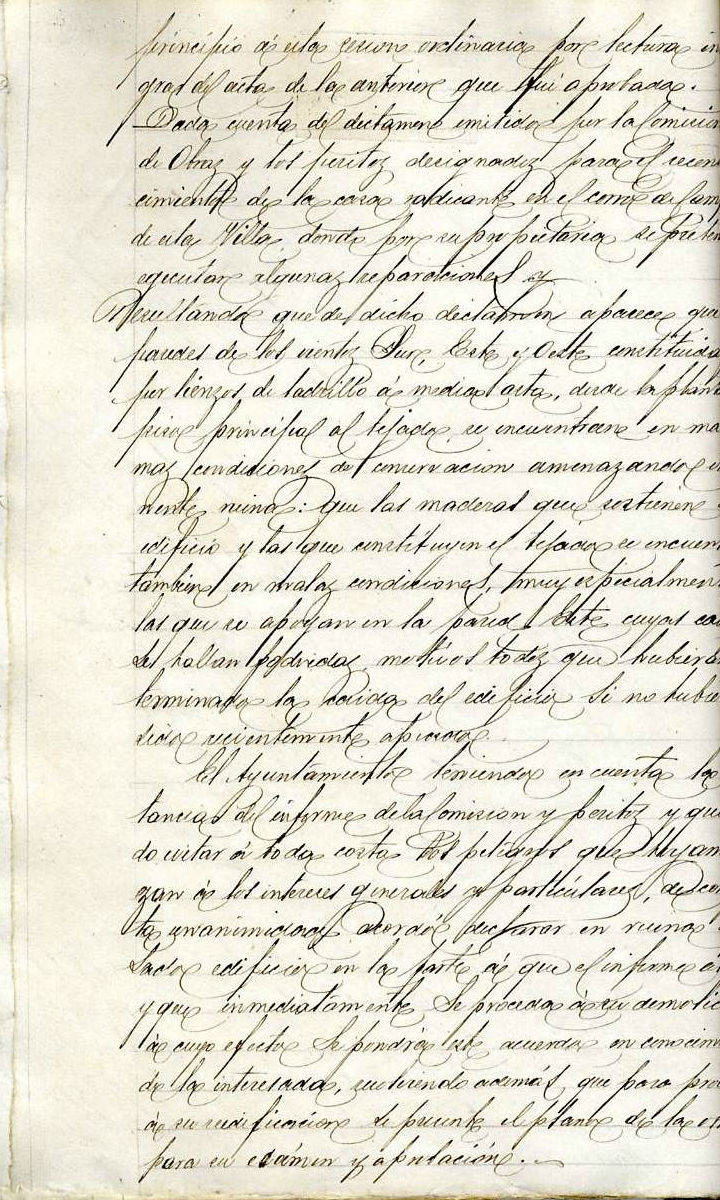 principio á esta sesion ordinaria por lectura in
gra del acta de la anterior que fué aprobada.
Dada cuenta del dictamen emitido por la Comision
de Obraz y los peritoz designadoz para el recono
cimiento de la casa radicante en el de Cam
de esta Villa, donde por su propietaria se preten
egecutar algunaz reparaciones y
Resultando que de dicho dictamen aparece que
paredes de los vientoz Sur, Este y Oeste constituida
por lienzos de ladrillo á media asta, desde la plant
piso principal al tejado se encuentran en ma
maz condicionez de conservacion amenazando in
nente ruina: que las maderas que sostienen
edificio y las que constituyen el tejado se encuen
tambien en malaz condiciones, muy especialmen
las que se apoyan en la pared Este cuyas ca
se hallan podridaz, motivos todoz que hubiera
terminado la caida del edificio si no hubie
sido recientemente apeado.
El Ayuntamiento teniendo en cuenta la
tancias del informe de la Comision y peritoz y que
do evitar á toda costa los peligros que
zan á los intereses generales y particulares, de con
ta unanimidad acordó declarar en ruina
lado edificio en la parte á que el informe á
y que inmediatamente se proceda á su demolic
á cuyo efecto se pondrá este acuerdo en conocim
de la interesada, resolviendo además que para pro
á su reedificacion se presente el plano de la
para su exámen y aprobación.